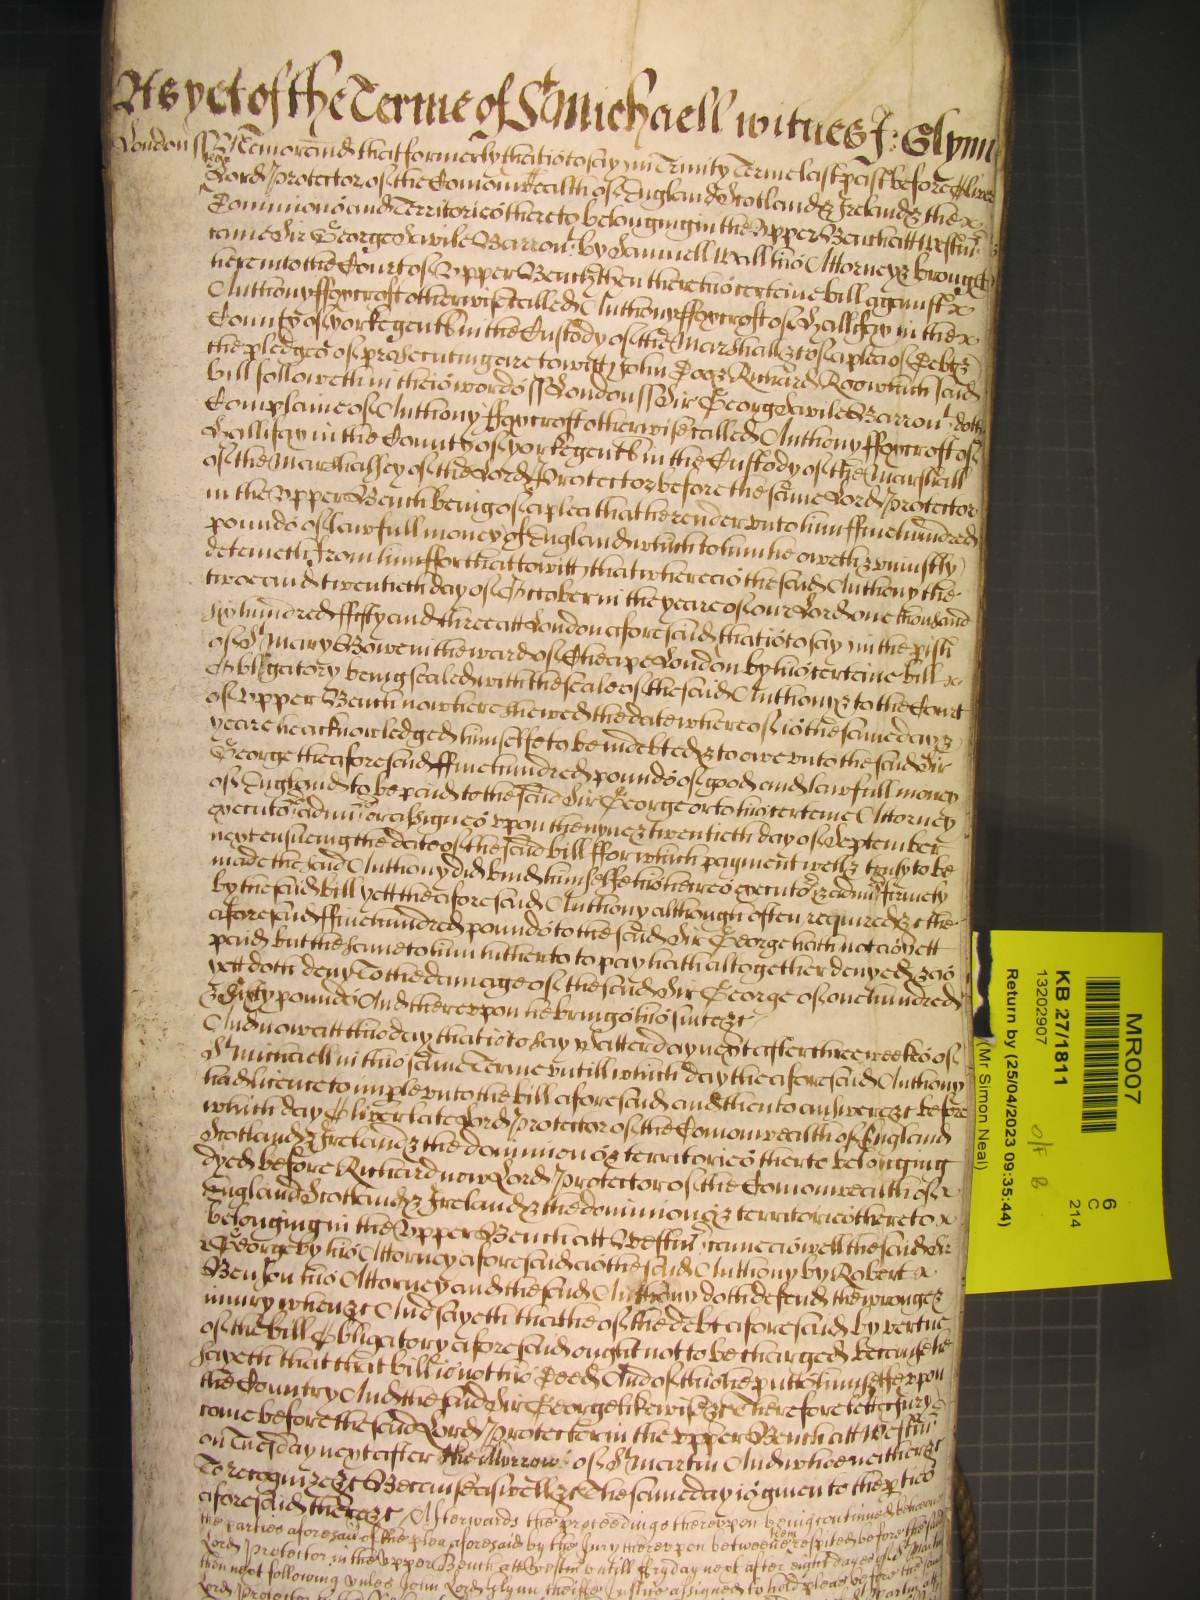 As yet of the Terme of St Michaell witnes J: Glynn
London ss Memorand that formerly that is to say in Trinity Terme last past before Oliver
late
Lord Protector of the Comonwealth of England Scotland & Ireland & the
Dominions and Territories thereto belonging in the Upper Bench att Westm
came Sir George Savile Barront by Samuell Wall his Attorney & brought
here into the Court of Upper Bench then there his certeine bill against
Anthony ffoxcroft otherwise called Anthony ffoxcroft of Hallifax in the
County of Yorke gent in the Custody of the Marshall &c of a plea of Debt &
the pledges of prosecuting are to witt John Doo & Richard Roo which said
bill followeth in theis words ss London ss Sir George Savile Barront doth
Complaine of Anthony ffoxcroft otherwise called Anthony ffoxcroft of
Hallifax in the County of Yorke gent in the Custody of the Marshall
of the Marshalsey of the Lord Protector before the same Lord Protector
in the Upper Bench being of a plea that he render unto him ffive hundred
pounds of lawfull money of England which to him he oweth & uniustly
deteineth from him ffor that to witt that whereas the said Anthony the
two and twentieth day of October in the yeare of our Lord one thousand
six hundred ffifty and three att London aforesaid that is to say in the pish
of St Mary Bowe in the ward of Cheape London by his certeine bill
Obligatory being sealed with the seale of the said Anthony & to the Court
of Upper Bench now here shewed the date whereof is the same day &
yeare he acknowledged himselfe to be indebted & to owe unto the said Sir
George the aforesaid ffive hundred pounds of good and lawfull money
of England to be paid to the said Sir George or to his certeine Attorney
executors admrs or assignes upon the nyne & twentieth day of September
next ensueing the date of the said bill ffor which payment well & truly to be
made the said Anthony did bind himselfe his heires executors & admrs firmely
by the said bill yett the aforesaid Anthony although often required &c the
aforesaid ffive hundred pounds to the said Sir George hath not as yett
paid but the same to him hitherto to pay hath altogether denyed & as
yett doth deny To the damage of the said Sir George of one hundred
& sixty pounds And thereupon he brings his suite &c
And now att this day that is to say Satterday next after three weekes of
St Michaell in this same Terme untill which day the aforesaid Anthony
had licence to imple unto the bill aforesaid and then to answere &c before
which day Oliver late Lord Protector of the Comonwealth of England
Scotland & Ireland & the dominions & territories therto belonging
dyed before Richard now Lord Protector of the Comonwealth of
England Scotland & Ireland & the dominions & territories thereto
belonging in the Upper Bench att Westm came aswell the said Sir
George by his Attorney aforesaid as the said Anthony by Robert
Benson his Attorney and the said Anthony doth defend the wrong &
iniury when &c And sayeth that he of the debt aforesaid by vertue
of the bill Obligatory aforesaid ought not to be charged because he
sayeth that that bill is not his Deed And of this he putts himselfe upon
the Country And the said Sir George likewise &c Therefore lett a Jury
come before the said Lord Protector in the Upper Bench att Westm
on Tuesday next after the Morrow of St Martin And who neither &c
To recognize &c Because aswell &c The same day is given to the pties
aforesaid there &c Afterwards the proceedings thereupon being continued betweene
the parties aforesaid of the plea aforesaid by the Jury thereupon betweene them respited before the said
Lord Protector in the Upper Bench att Westm untill ffryday next after eight dayes of St Martin
then next following unles John Lord Glynn cheife Justice assigned to hold pleas before the said
MR007
KB 27/1811
13202907
Return by (25/04/2023 09:35:44)
(Mr Simon Neal)
6
C
214
O/F
B